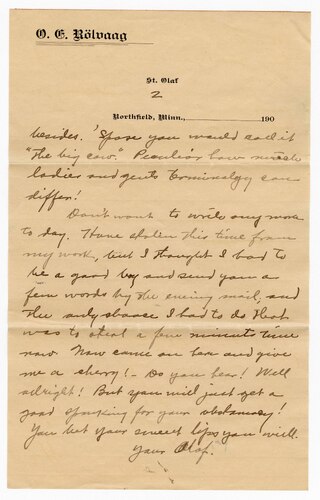 O. E. Rölvaag
St. Olaf
2
Northfield, Minn., 190
besides. 'Spose you would call it
"The big cow." Peculiar how much
ladies and gents terminology can
differ!
Don't want to write any more
to day. Have stolen this time from
my work, but I thought I had to
be a good boy and send you a
few words by the evening mail, and
the only chance I had to do that
was to steal a few minutes time
now. Now come on and give
me a cherry! - Do you hear! Well
allright! But you will just get a
good spanking for your obstinacy!
You bet your sweet lips you will.
Your Olaf.